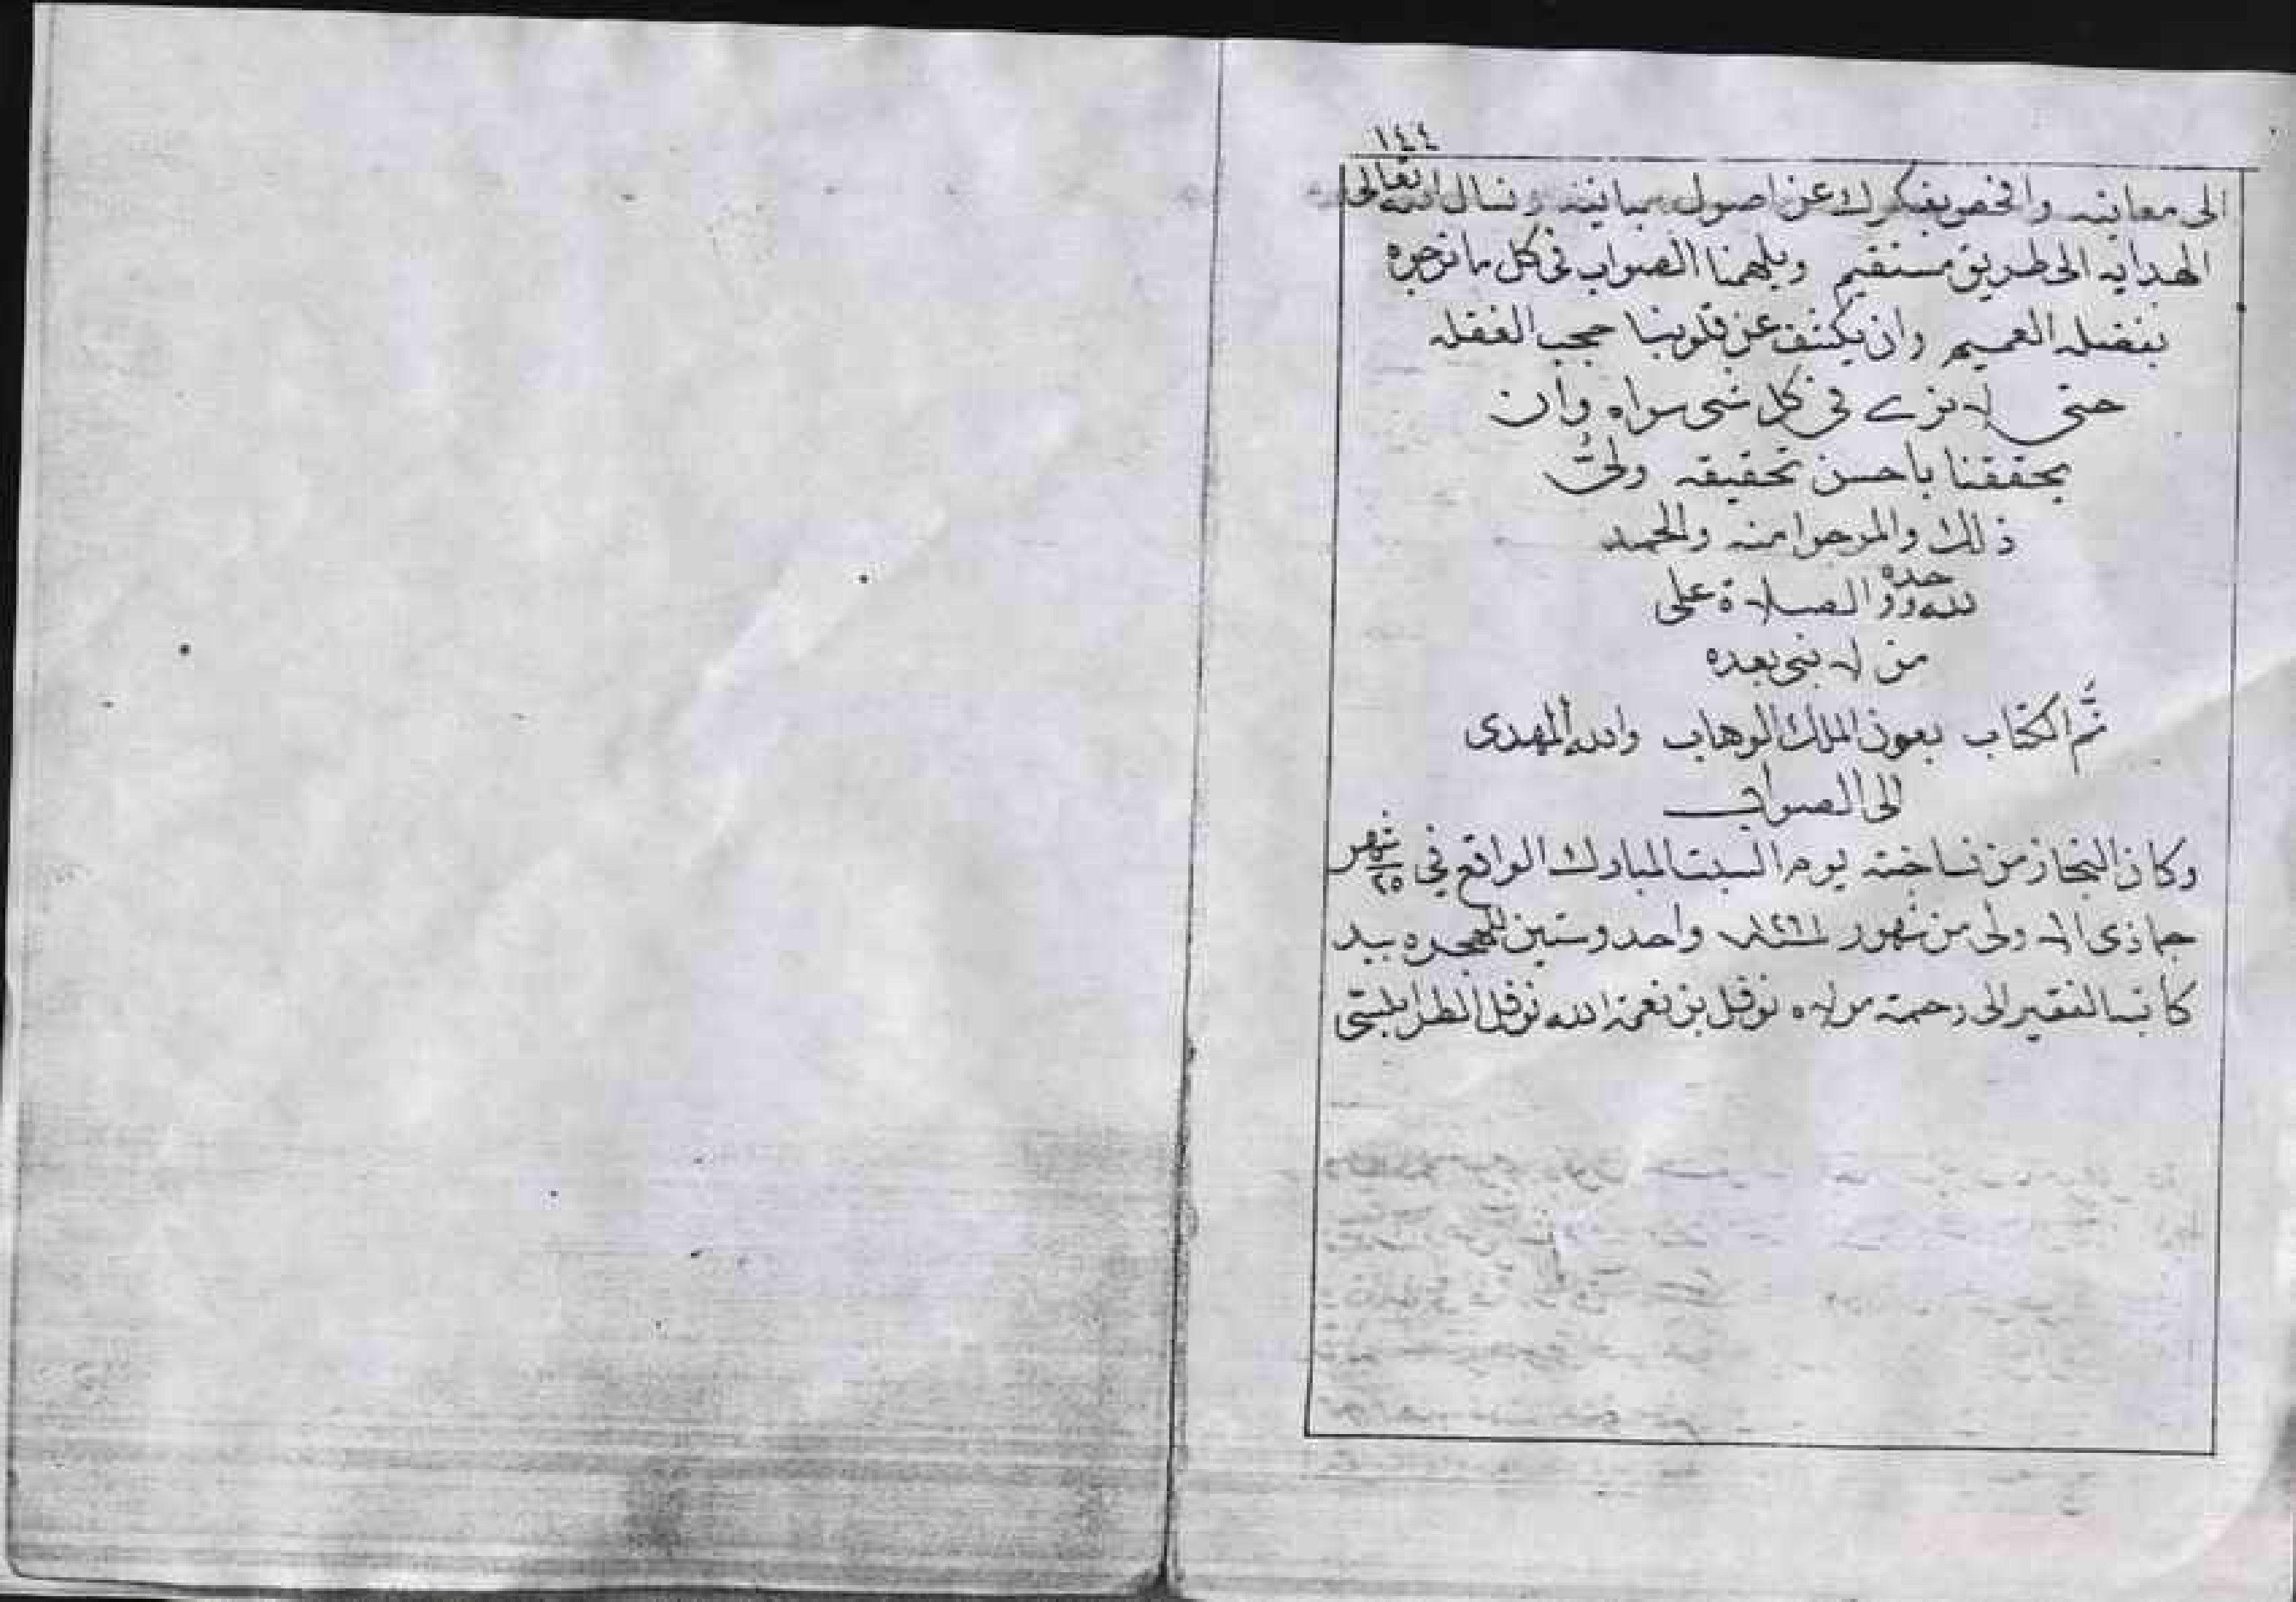 ١٤٤
الى معانيه وافحص بفكرك عن اصول مبانيه ونسال الله تعالى
الهدايه الى طريق مستقيم ويلهمنا الصواب فى كل ما نرجوه
بفضله العميم وان يكشف عن قلوبنا حجب الغفله
حتى لا نرى في كل شى سواه وان
يحققنا باحسن تحقيقه ولىّ
ذلك والمرجوا منه والحمد
لله وحده والصلاة على
من لا نبى بعده
تم الكتاب بعون الملك الوهاب والله المهدى
الى الصواب
وكان النجاز من نساخته يوم السبت المبارك الواقع في ٢٥ شهر
جماذى الاولى من شهور سنة ١٢٦١ واحد وستين للهجره بيد
كاتبه الفقير الى رحمة مولاه نوفل بن نعمة الله نوفل الطرابلسى